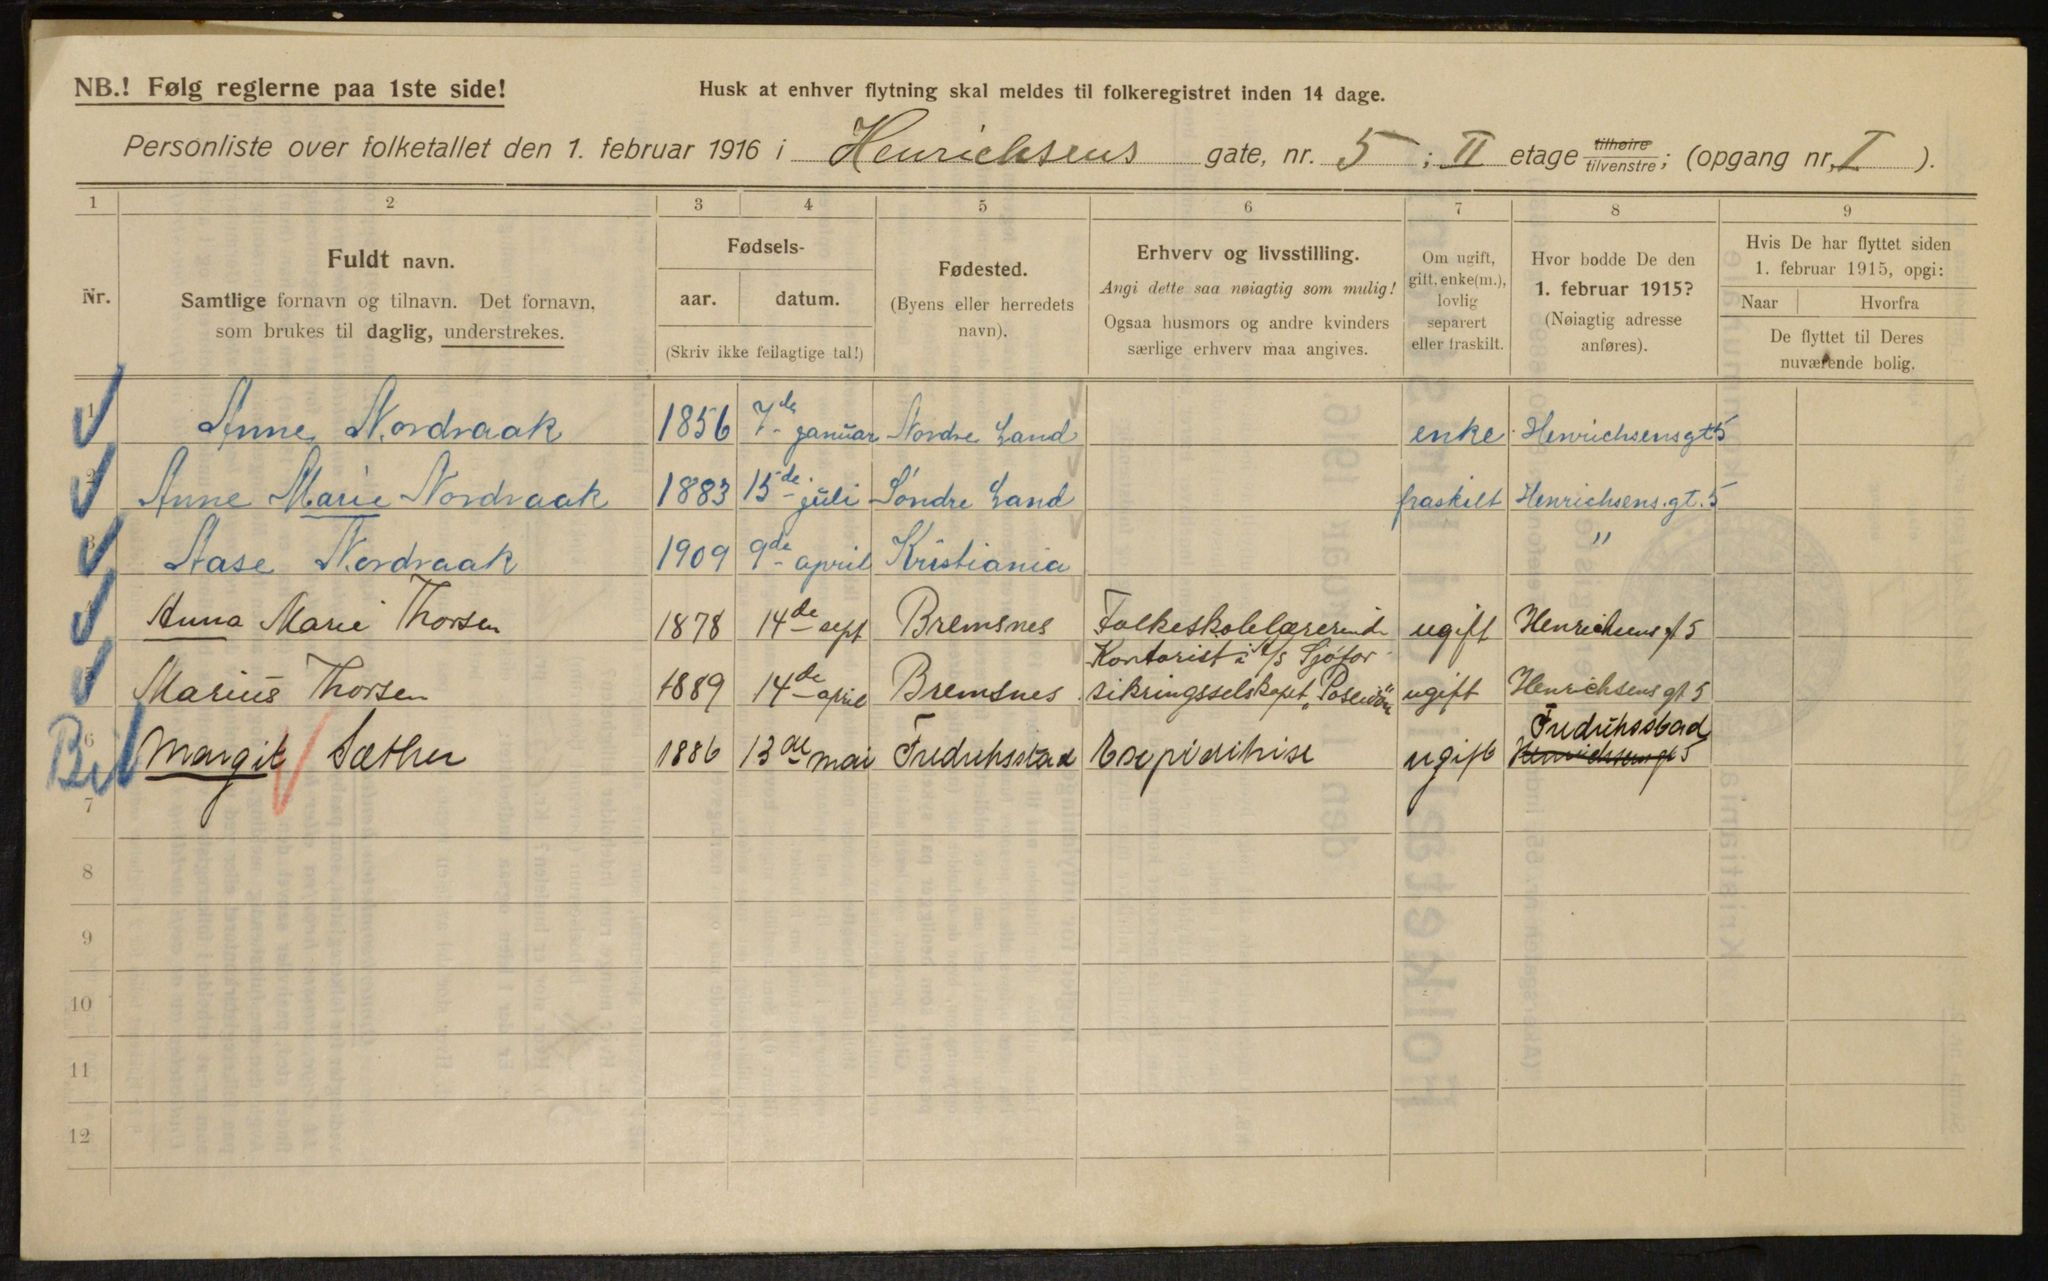 NB.! Følg reglerne paa 1ste side!
Husk at enhver flytning skal meldes til folkeregistret inden 14 dage.
Personliste over folketallet den 1. februar 1916 i Henrichsens gate, nr. 5; II etage tilhøire/tilvenstre; (opgang nr. I).
1 2 3 4 5 6 7 8 9
Nr.
Fuldt navn.
Samtlige fornavn og tilnavn. Det fornavn,
som brukes til daglig, understrekes.
Fødsels-
aar. datum.
(Skriv ikke feilagtige tal!)
Fødested.
(Byens eller herredets
navn).
Erhverv og livsstilling.
Angi dette saa nøiagtig som mulig!
Ogsaa husmors og andre kvinders
særlige erhverv maa angives.
Om ugift,
gift, enke(m.),
lovlig
separert
eller fraskilt.
Hvor bodde De den
1. februar 1915?
(Nøiagtig adresse
anføres).
Hvis De har flyttet siden
1. februar 1915, opgi:
Naar Hvorfra
De flyttet til Deres
nuværende bolig.
1 Anne Nordraak 1856 7de januar Nordre Land enke Henrichsensgt 5
2 Anne Marie Nordraak 1883 15de juli Søndre Land fraskilt Henrichsens.gt. 5
3 Aase Nordraak 1909 9de april Kristiania "
4 Anna Marie Thorsen 1878 14de sept Bremsnes Folkeskolelærerinde ugift Henrichsens gt 5
Kontorist i A/S Sjøfor-
5 Marius Thorsen 1889 14de april Bremsnes sikringsselskapet „Poseidon" ugift Henrichsens gt 5
Fredriksstad
Bil 6 Margit Sæther 1886 13de mai Fredriksstad Expeditrise ugift Henrichsens gt 5
7
8
9
10
11
12